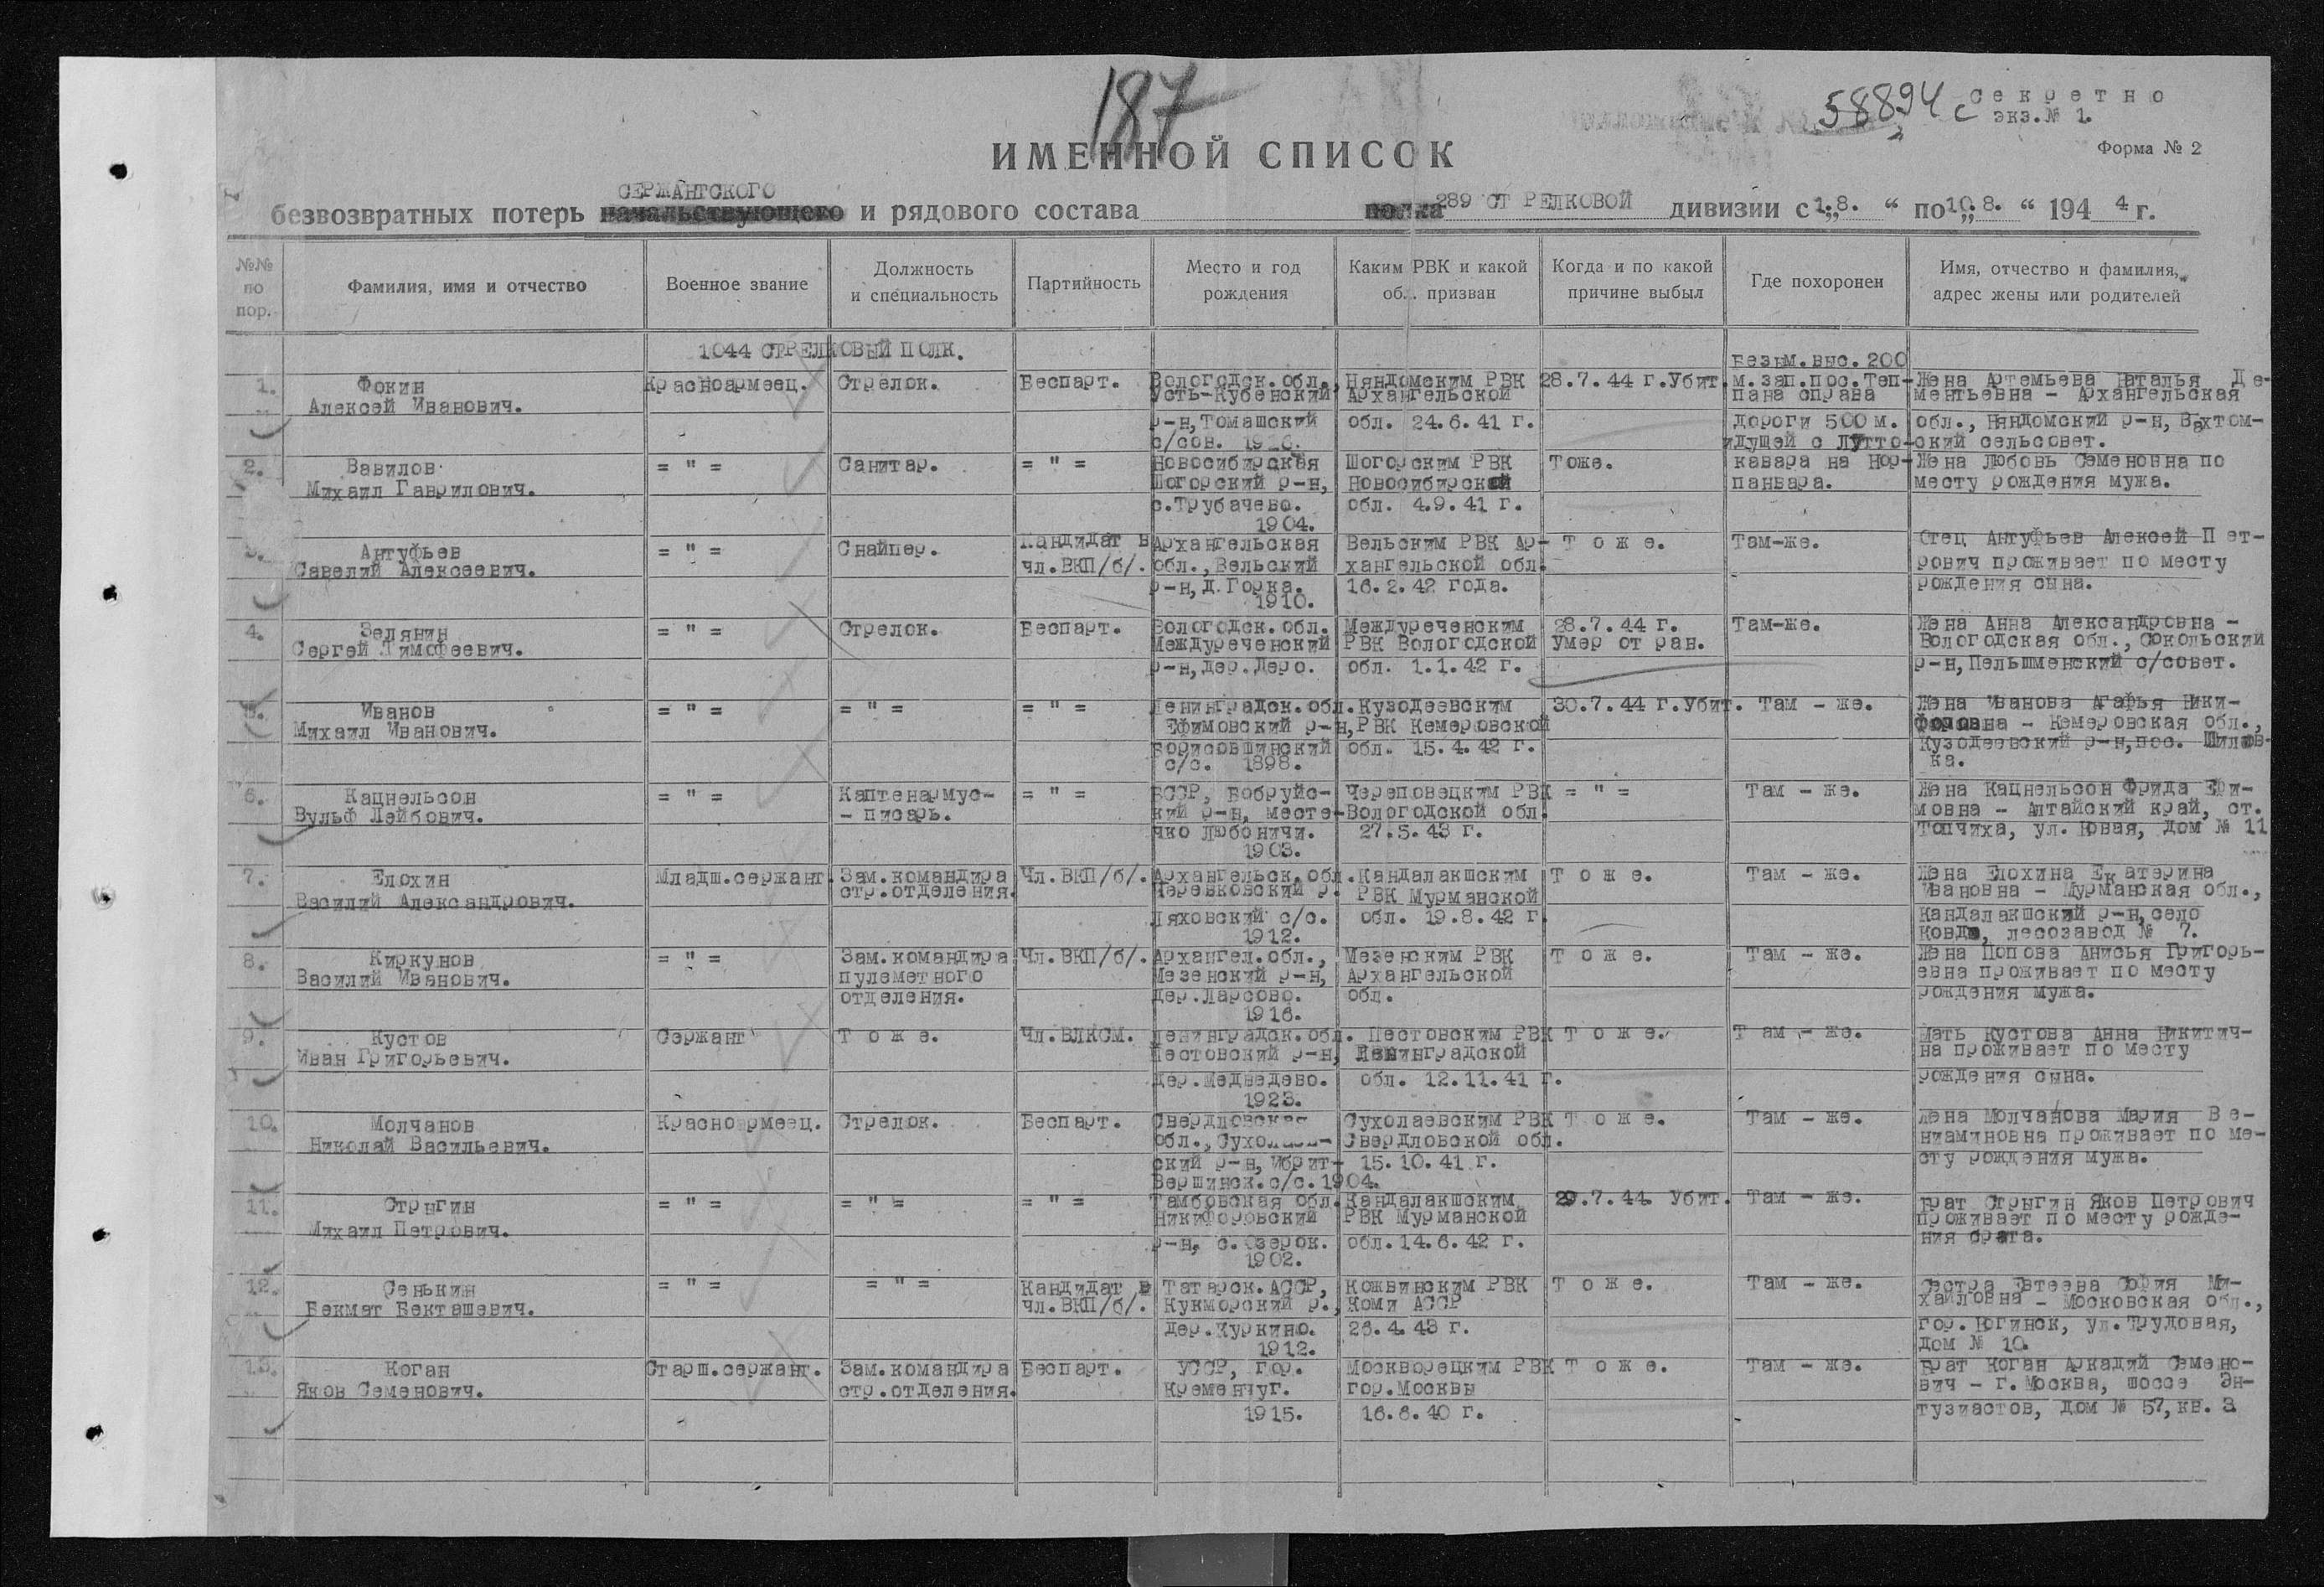 187
58894 с
Секретно
экз.№ 1.
Форма № 2
ИМЕННОЙ СПИСОК
СЕРЖАНТСКОГО
безвозвратных потерь начальствующего и рядового состава полка 289 СТРЕЛКОВОЙ дивизии с „1.8. “ по „10.8. “ 194 4 г.
№№ по пор.
Фамилия, имя и отчество
Военное звание
Должность и специальность
Партийность
Место и год рождения
Каким РВК и какой обл. призван
Когда и по какой причине выбыл
Где похоронен
Имя, отчество и фамилия, адрес жены или родителей
1044 СТРЕЛКОВЫЙ ПОЛК.
1.
Фокин
Алексей Иванович.
Красноармеец.
Стрелок.
Беспарт.
Вологодск.обл.,
Усть-Кубенский
р-н,Томашский
с/сов.
Няндомским РВК
Архангельской
обл. 24.6.41 г.
28.7.44 г.Убит.
Безым.выс.200
м.зап.пос.Теп-
пана справа
дороги 500 м.
идущей с Лутто-
кавара на Нор-
панвара.
Жена Артемьева Наталья Де-
ментьевна - Архангельская
обл., Няндомский р-н, Вохтом-
ский сельсовет.
2.
Вавилов
Михаил Гаврилович.
= " =
Санитар.
= " =
Новосибирская
Шогорский р-н,
с.Трубачево.
1904.
Шогорским РВК
Новосибирской
обл. 4.9.41 г.
Тоже.
Жена Любовь Семеновна по
месту рождения мужа.
3.
Антуфьев
Савелий Алексеевич.
= " =
Снайпер.
Кандидат в
чл.ВКП/б/.
Архангельская
обл.,Вельский
р-н,д.Горка.
1910.
Вельским РВК Ар-
хангельской обл.
16.2.42 года.
Т о ж е.
Там-же.
Отец Антуфьев Алексей Пет-
рович проживает по месту
рождения сына.
4.
Зелянин
Сергей Тимофеевич.
= " =
Стрелок.
Беспарт.
Вологодск.обл.
Междуреченский
р-н,дер.Деро.
Междуреченским
РВК Вологодской
обл. 1.1.42 г.
28.7.44 г.
Умер от ран.
Там-же.
Жена Анна Александровна -
Вологодская обл.,Сокольский
р-н,Пельшменский с/совет.
5.
Иванов
Михаил Иванович.
= " =
= " =
= " =
Ленинградск.обл.
Ефимовский р-н,
Борисовшинский
с/с. 1898.
Кузодеевским
РВК Кемеровской
обл. 15.4.42 г.
30.7.44 г.Убит.
Там - же.
Жена Иванова Агафья Ники-
форовна - Кемеровская обл.,
Кузодеевский р-н,пос. Шилов-
ка.
6.
Кацнельсон
Вульф Лейбович.
= " =
Каптенармус-
- писарь.
= " =
БССР, Бобруйс-
кий р-н, месте-
чко Любоничи.
1903.
Череповецким РВК
Вологодской обл.
27.5.43 г.
= " =
Там - же.
Жена Кацнельсон Фрида Ефи-
мовна - Алтайский край, ст.
Топчиха, ул. Новая, дом № 11
7.
Елохин
Василий Александрович.
Младш.сержант.
Зам.командира
стр.отделения.
Чл.ВКП/б/.
Архангельск.обл.
Черевковский р.
Ляховский с/с.
1912.
Кандалакшским
РВК Мурманской
обл. 19.8.42 г.
Т о ж е.
Там - же.
Жена Елохина Екатерина
Ивановна - Мурманская обл.,
Кандалакшский р-н,село
Ковда, лесозавод № 7.
8.
Киркунов
Василий Иванович.
= " =
Зам.командира
пулеметного
отделения.
Чл.ВКП/б/.
Архангел.обл.,
Мезенский р-н,
дер.Ларсово.
1916.
Мезенским РВК
Архангельской
обл.
Т о ж е.
Там - же.
Жена Попова Анисья Григорь-
евна проживает по месту
рождения мужа.
9.
Кустов
Иван Григорьевич.
Сержант
Т о ж е.
Чл.ВЛКСМ.
Ленинградск.обл.
Пестовский р-н,
дер.Медведево.
1923.
Пестовским РВК
Ленинградской
обл. 12.11.41 г.
Т о ж е.
Т ам - же.
Мать Кустова Анна Никитич-
на проживает по месту
рождения сына.
10.
Молчанов
Николай Васильевич.
Красноармеец.
Стрелок.
Беспарт.
Свердловская
обл.,
ский р-н, Ибрит-
Вершинск.с/с.1904.
Сухолаевским РВК
Свердловской обл.
15.10.41 г.
Т о ж е.
Там - же.
Жена Молчанова Мария Ве-
ниаминовна проживает по ме-
сту рождения мужа.
11.
Стрыгин
Михаил Петрович.
= " =
= " =
= " =
Тамбовская обл.
Никифоровский
р-н, с.Озерок.
1902.
Кандалакшским
РВК Мурманской
обл.14.6.42 г.
29.7.44. Убит.
Там - же.
Брат Стрыгин Яков Петрович
проживает по месту рожде-
ния брата.
12.
Сенькин
Бекмат Бекташевич.
= " =
= " =
Кандидат в
чл.ВКП/б/.
Татарск.АССР,
Кукморский р.,
дер.Куркино.
1912.
Кожвинским РВК
Коми АССР
26.4.43 г.
Т о ж е.
Там - же.
Сестра Евтеева София Ми-
хайловна - Московская обл.,
гор.Ногинск, ул.Трудовая,
дом № 10.
13.
Коган
Яков Семенович.
Старш.сержант.
Зам.командира
стр.отделения.
Беспарт.
УССР, гор.
Кременчуг.
1915.
Москворецким РВК
гор.Москвы
16.6.40 г.
Т о ж е.
Там - же.
Брат Коган Аркадий Семено-
вич - г. Москва, шоссе Эн-
тузиастов, дом № 57, кв. 3